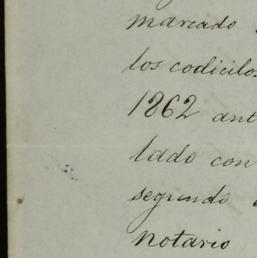 marcado
los codicilos
1862 ant
lado con
segundo
notario